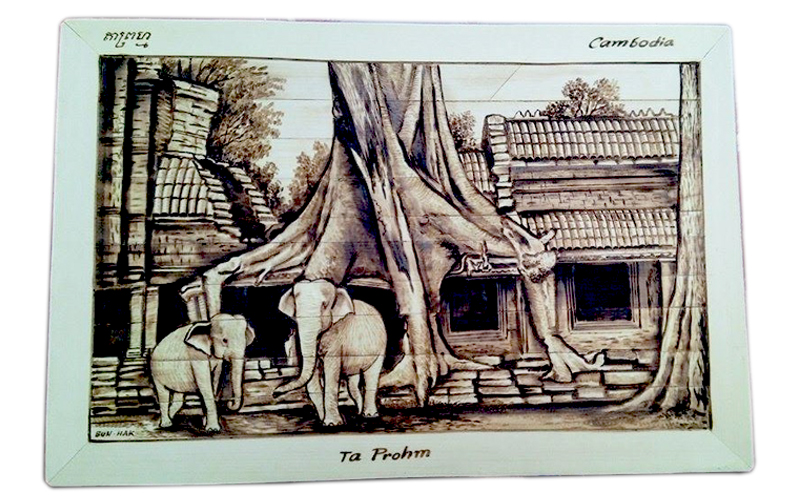 តាព្រហ្ម
Cambodia
BUN-HAK
Ta Prohm